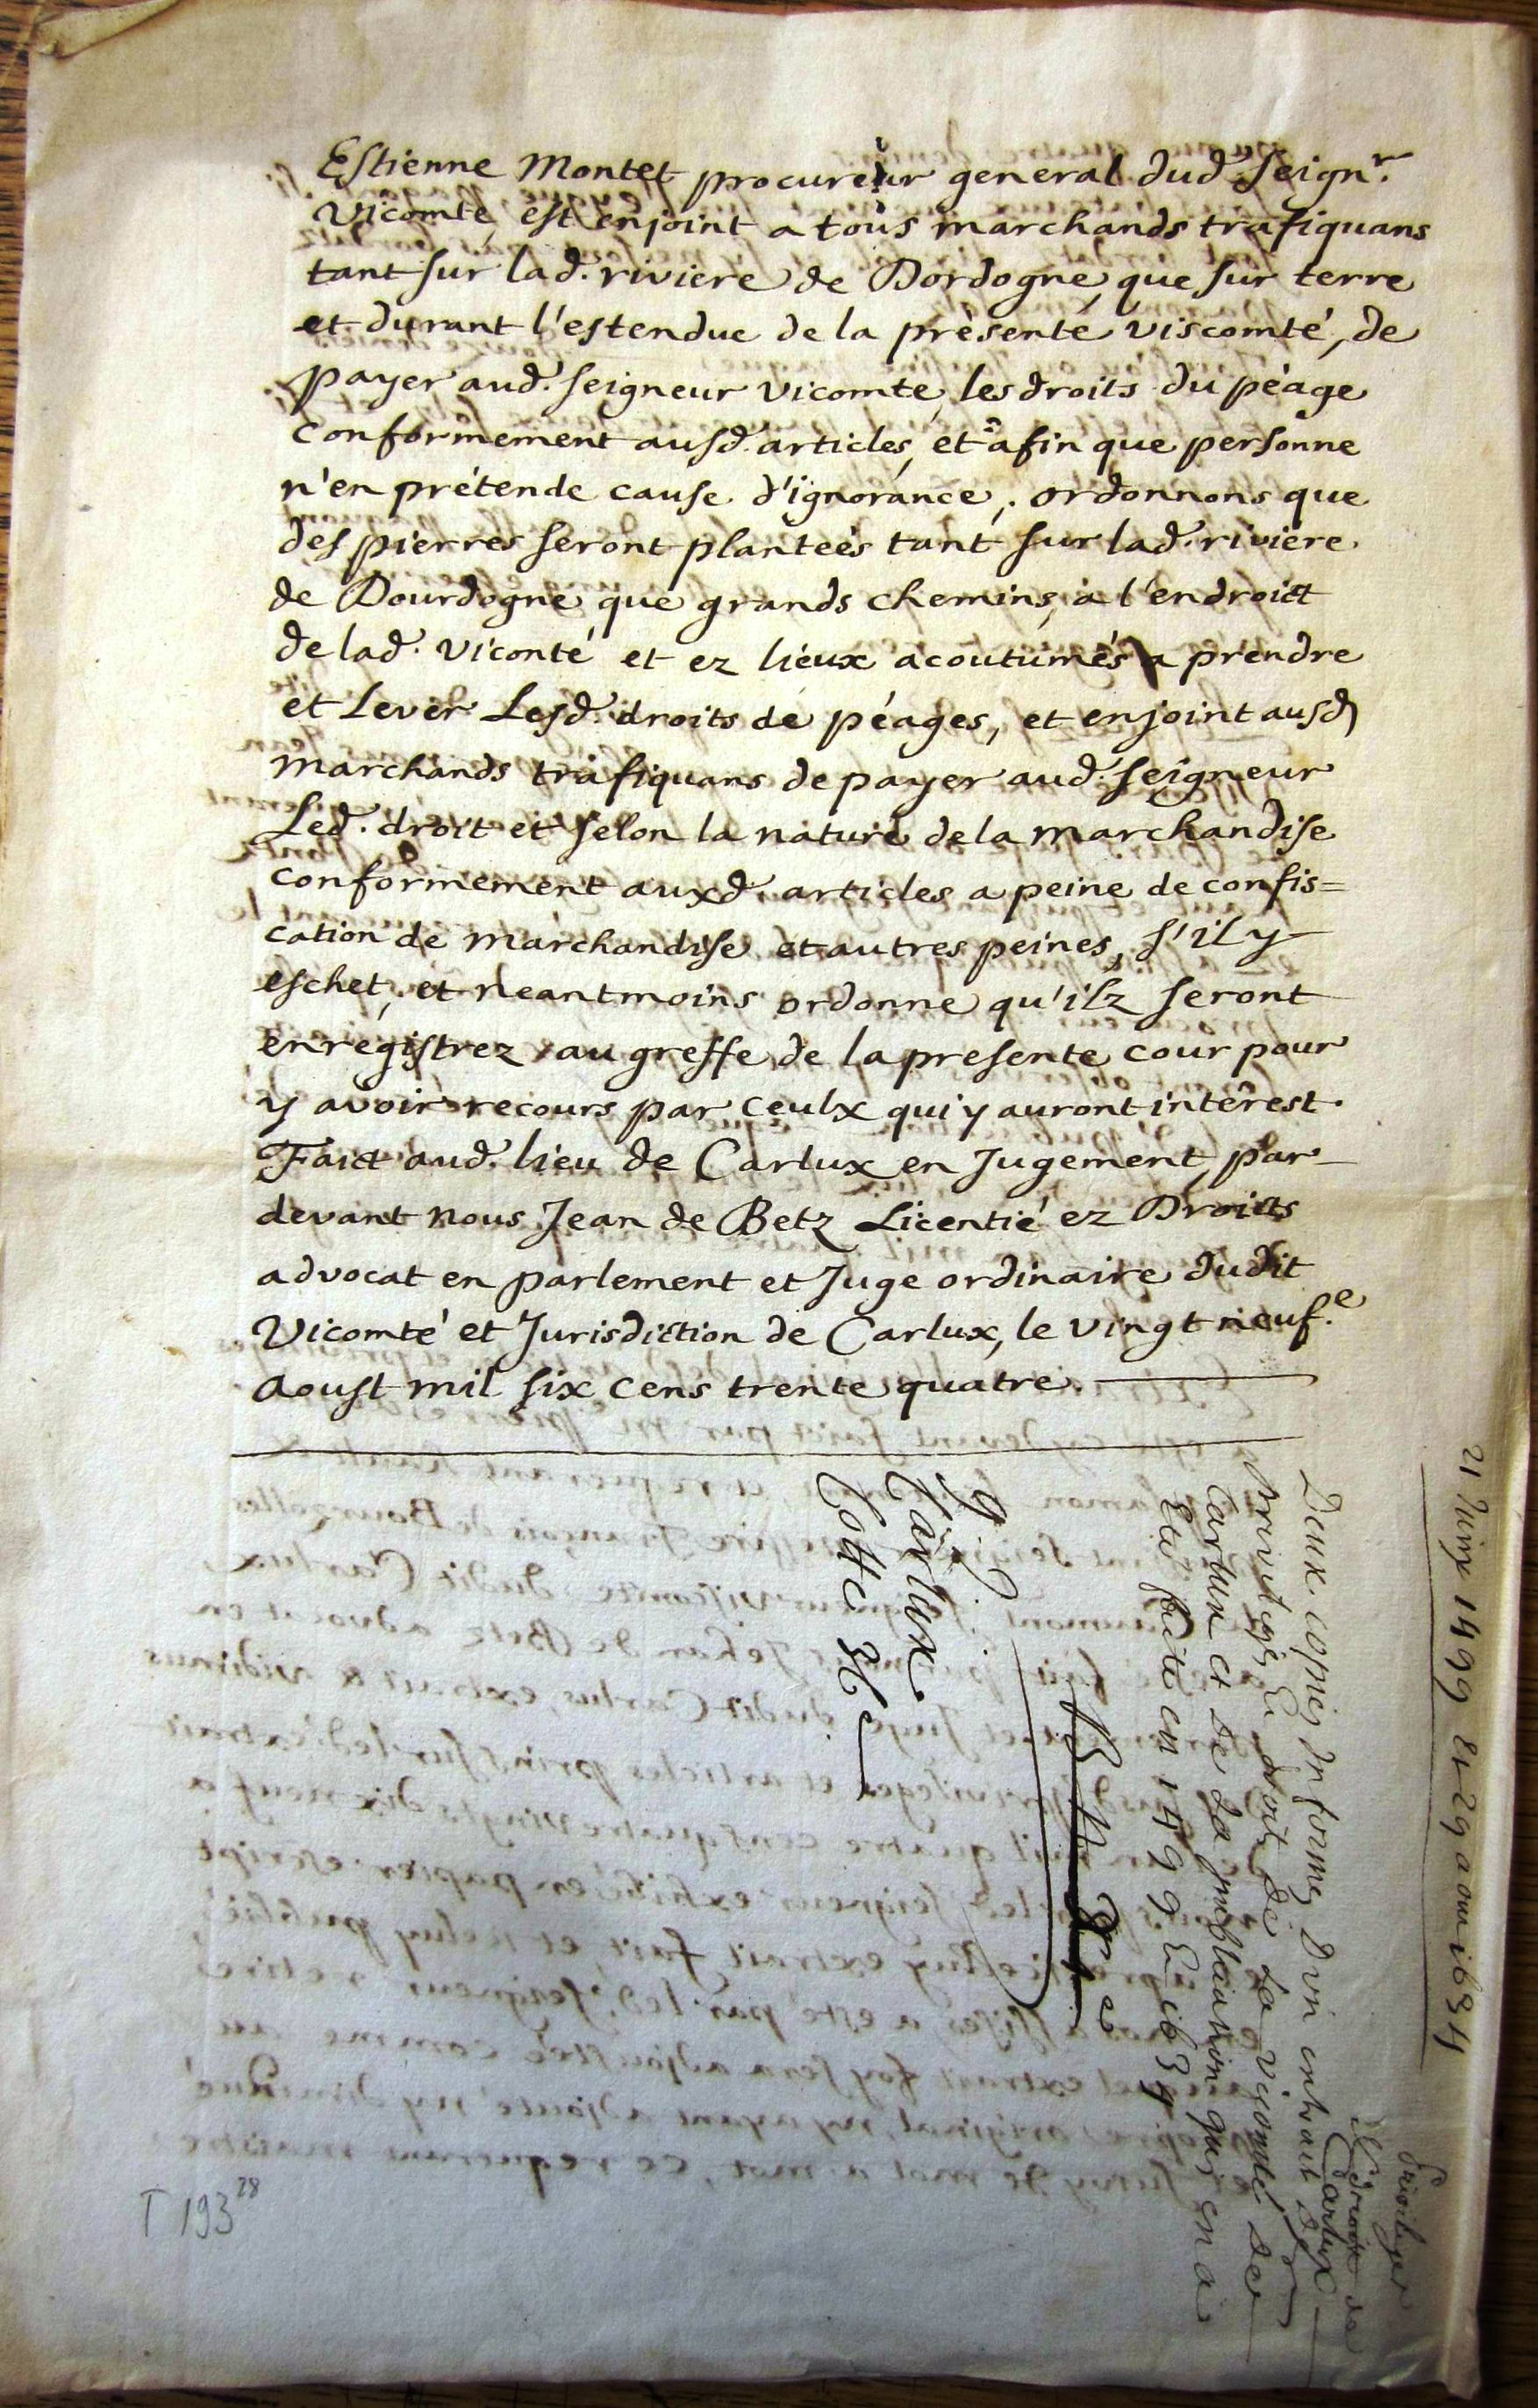 Estienne Montet procureur general dud. Seign.r
Vicomte, est enjoint a tous marchands trafiquans
tant sur lad. riviere de Dordogne, que sur terre
et durant l'estendue de la présente viscomté, de
payer aud. seigneur Vicomte, les droits du péage
conformement ausd. articles, et afin que personne
n'en prétende cause d'ignorance, ordonnons que
des pierres seront plantées tant sur lad. riviere
de Dourdogne que grands chemins, à l'endroict
de lad. Viconté et ez lieux acoutumés a prendre
et Lever Lesd. droits de péages, et enjoint ausd
marchands trafiquans de payer aud. seigneur
Led. droit et selon la nature de la marchandise
conformement auxd. articles a peine de confis=
cation de marchandise et autres peines, s'il y
eschet, et neantmoins ordonne qu'ilz seront
enregistrez au greffe de la presente cour pour
y avoir recours par ceulx qui y auront intêrest.
Faict aud. lieu de Carlux en Jugement, par-
devant nous Jean de Betz Licentié ez Droicts
advocat en parlement et Juge ordinaire dudit
Vicomté et Jurisdiction de Carlux, le vingt neuf.e
Aoust mil six cens trente quatre.
21 Juin 1499 et 29 aou 1634
Deux copies en forme d'un extrait des
Privileges & droit de la Vicomté de
Carlux et de la publication qui en a
Eté faite en 1499 & 1634
Carlux.
Cotte
Privileges
& droits de
Carlux
T 193 28